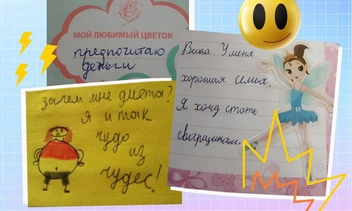 МОЙ ЛЮБИМЫЙ ЦВЕТОК
предпочитаю
деньги
Вика. У меня
хорошая семья.
Я хочу стать
зачем мне диета?
я и так
чудо
из
чудес!